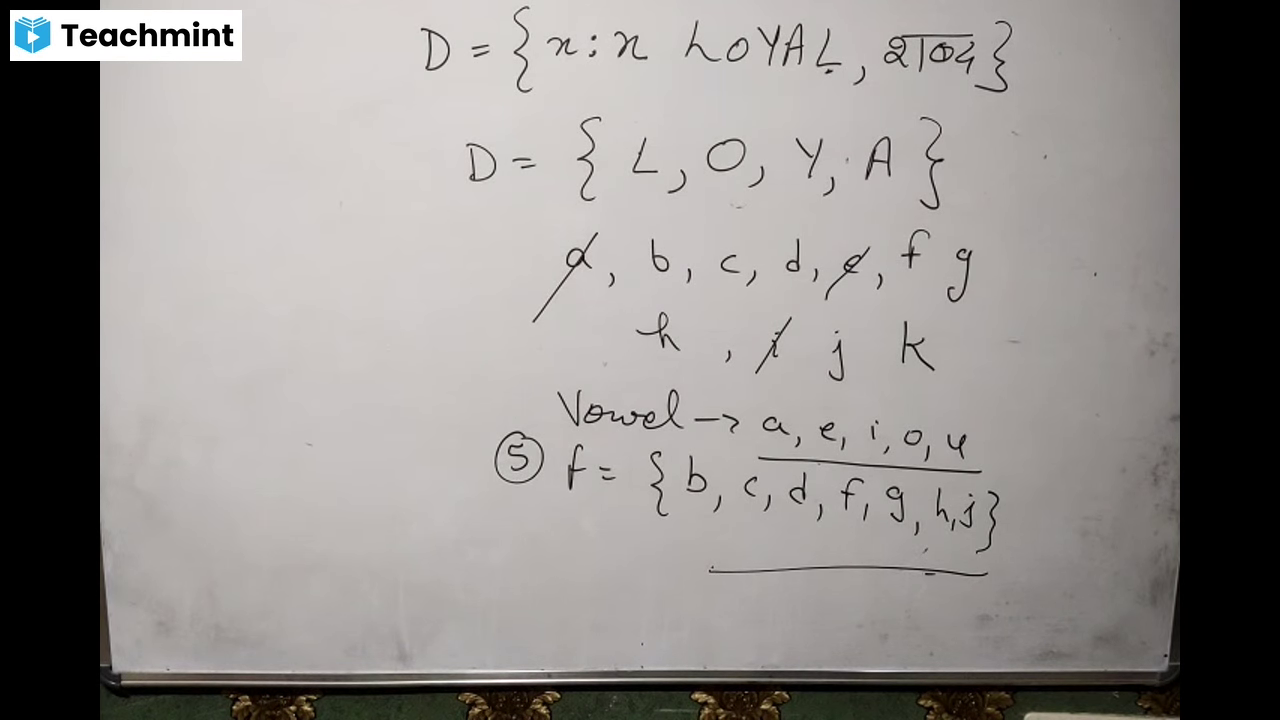 Teachmint
D = {x : x LOYAL, शब्द}
D = { L, O, Y, A }
a, b, c, d, e, f g
h , i j k
Vowel → a, e, i, o, u
⑤ f = { b, c, d, f, g, h, j }